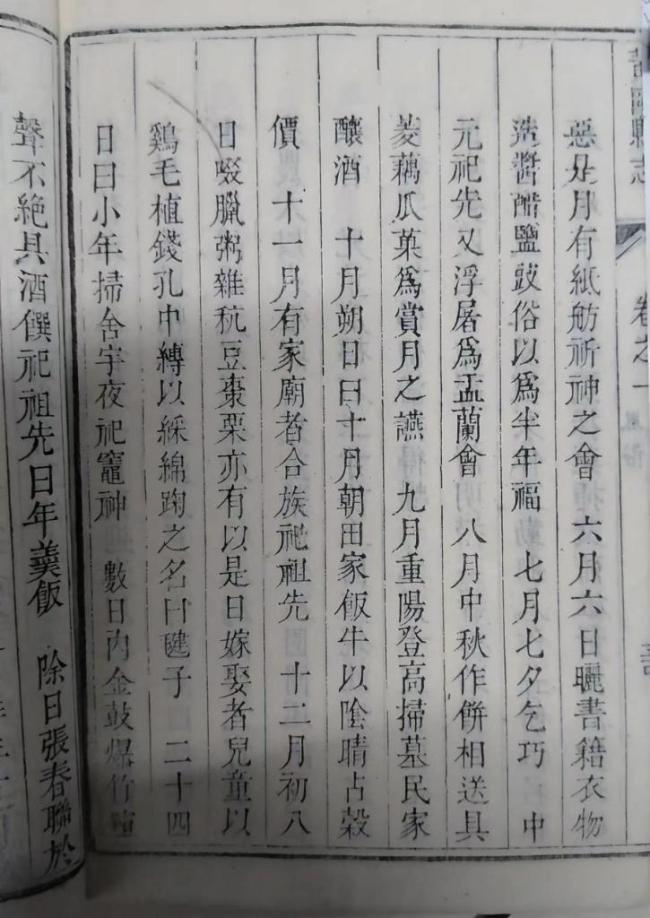 縣志 卷之一 風俗
惡是月有紙舫祈神之會 六月六日曬書籍衣物
造醬醋鹽豉俗以爲半年福 七月七夕乞巧 中
元祀先又浮屠爲盂蘭會 八月中秋作併相送具
菱藕瓜菓爲賞月之讌 九月重陽登高掃墓民家
釀酒 十月朔日曰十月朝田家飯牛以陰晴占穀
價 十一月有家廟者合族祀祖先 十二月初八
日啜臘粥雜秔豆棗栗亦有以是日嫁娶者兒童以
鷄毛植錢孔中縛以綵綿踘之名曰毽子 二十四
日曰小年掃舍宇夜祀竈神 數日內金鼓爆竹
聲不絕具酒饌祀祖先曰年羹飯 除日張春聯於